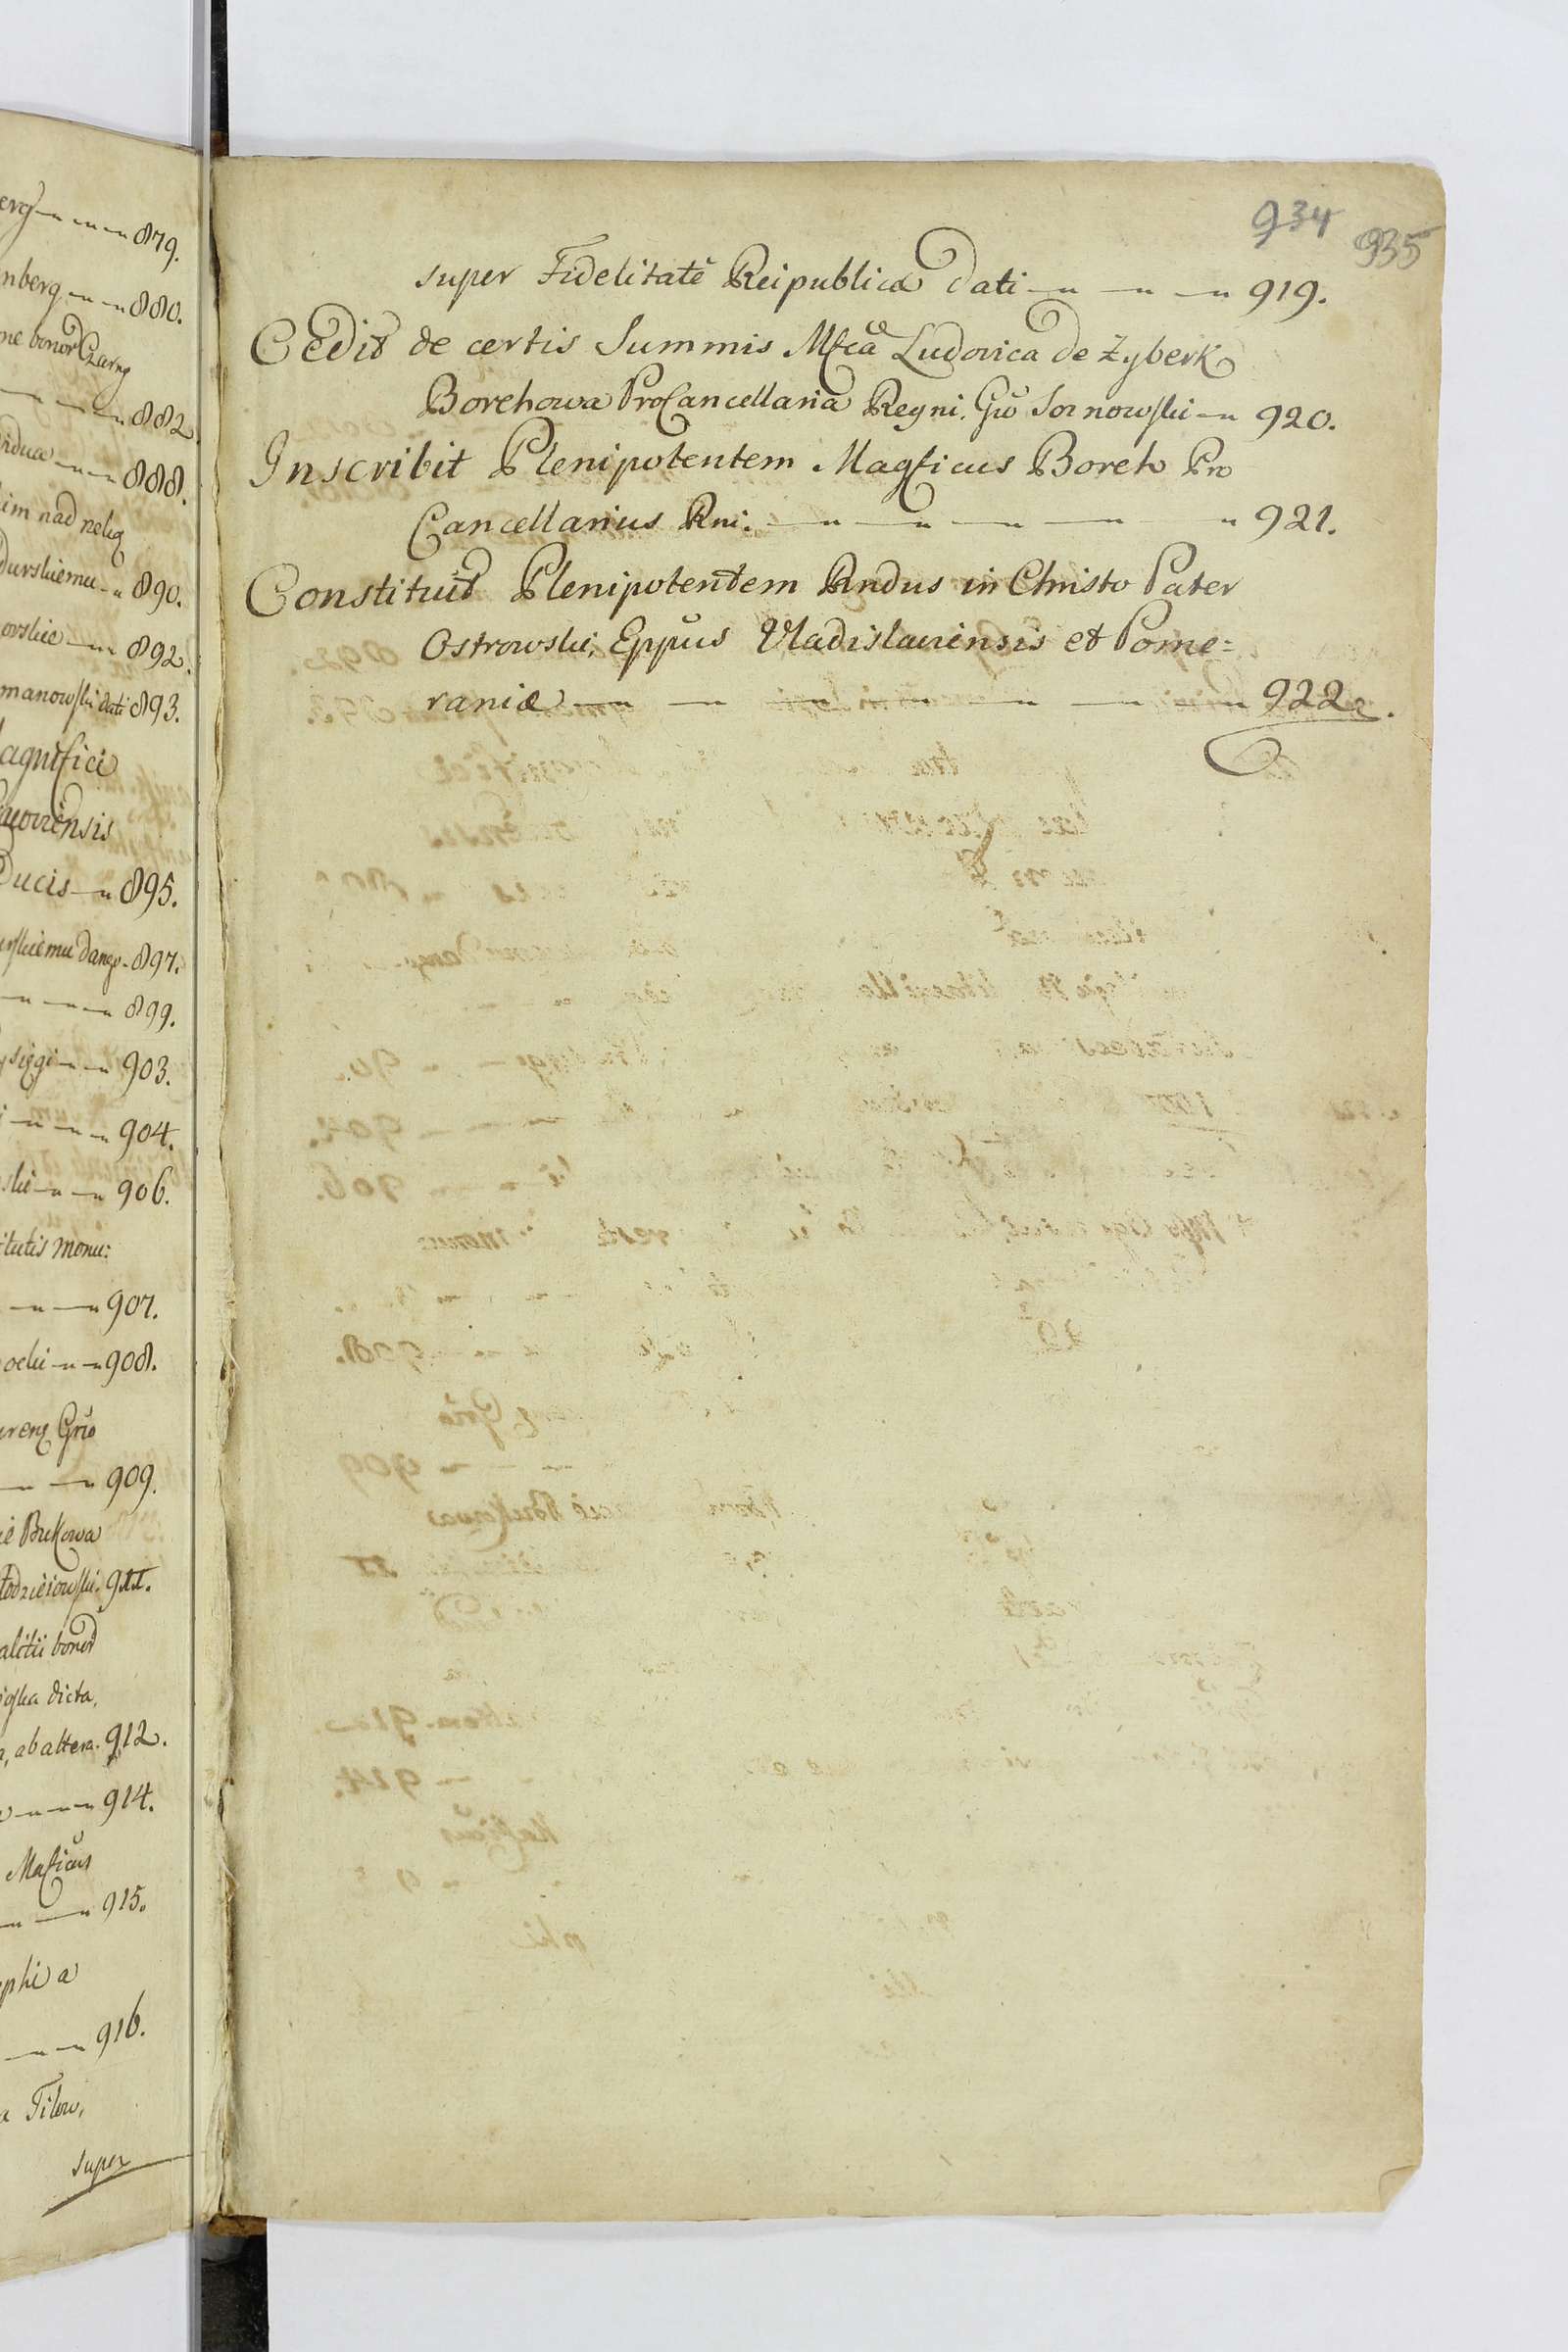 erg 879.
nberg 880.
ne bonor Czarny
882.
vidua 888.
im nad nelig
durskiemu 890.
orskie 892.
manowski dati 893.
agnifici
Kijoviensis
Ducis 895.
urskiemu dango 897.
899.
903.
904.
ski 906.
itutis monu:
907.
ocki 908.
areng Grio
909.
ie Bukowa
łodzieiowski. 911.
alitii bonor
ioska dicta,
a, ab altera. 912.
914.
Maficus
915.
phi a
916.
a Filow,
super
934 935
super Fidelitatẽ Reipublicæ dati 919.
Cedit de certis Summis Mfca Ludovica de Zyberk
Borchowa ProCancellaria Regni. Gio Sosnowski 920.
Inscribit Plenipotentem Magficus Borch Pro
Cancellarius Rni. 921.
Constituit Plenipotentem Rndus in Christo Pater
Ostrowski, Eppus Vladislaviensis et Pome:
raniæ 922.